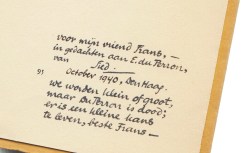 voor mijn vriend Frans, —
in gedachten aan E. du Perron,
van
Sjed.
October 1940, Den Haag.
we worden klein of groot,
maar DuPerron is dood;
er is een kleine kans
te leven, beste Frans —